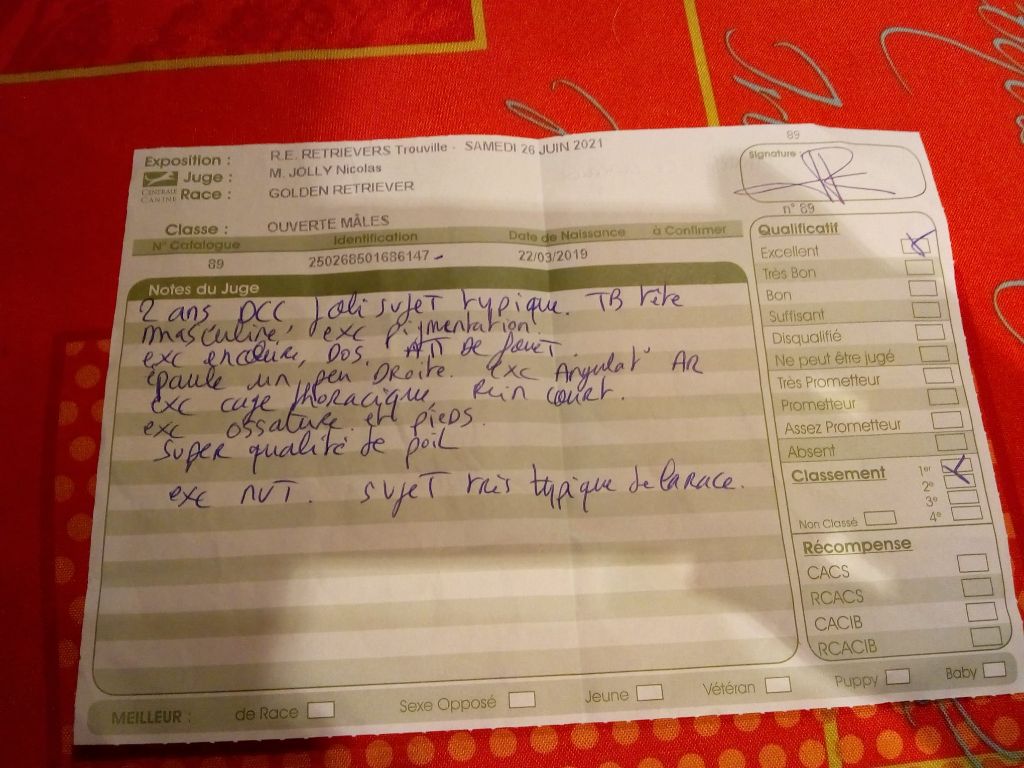 89
Exposition : R.E. RETRIEVERS Trouville - SAMEDI 26 JUIN 2021
Juge : M. JOLLY Nicolas
CENTRALE CANINE
Race : GOLDEN RETRIEVER
Signature :
n° 89
Classe : OUVERTE MÂLES
N° Catalogue Identification Date de Naissance à Confirmer
89 250268501686147 22/03/2019
Notes du Juge
2 ans DCC joli sujet typique. TB tête
masculine, exc pigmentation.
exc encolure, Dos. De fouet.
épaule un peu Droite. exc Angulat° AR
exc cage thoracique, Rein court.
exc ossature et pieds.
Super qualité de poil
exc MVT. sujet très typique de la race.
Qualificatif
Excellent
Très Bon
Bon
Suffisant
Disqualifié
Ne peut être jugé
Très Prometteur
Prometteur
Assez Prometteur
Absent
Classement 1er
2e
3e
Non Classé 4e
Récompense
CACS
RCACS
CACIB
RCACIB
MEILLEUR : de Race Sexe Opposé Jeune Vétéran Puppy Baby